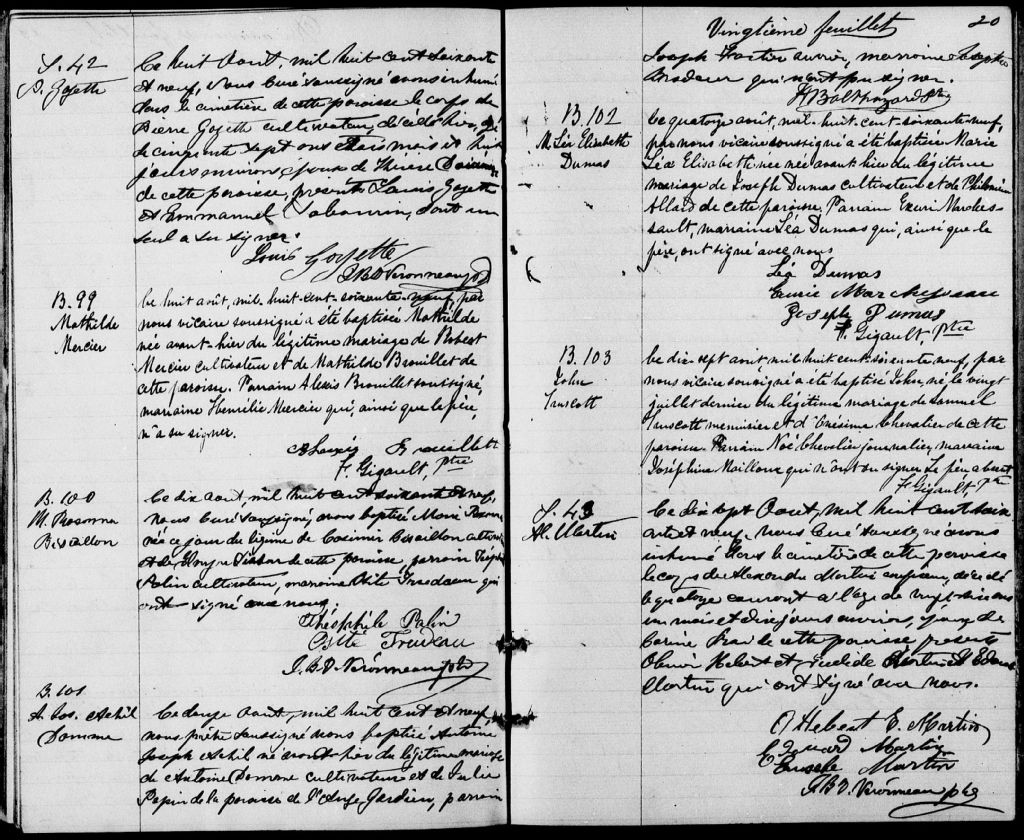 S. 42
P. Goyette
Ce huit Aout, mil huit cent soixante
et neuf, Nous Curé soussigné avons inhumé
dans le cimetière de cette paroisse le corps de
Pierre Goyette cultivateur, décédé hier, agé
de cinquante sept ans mois et huit
jours environs, époux de
de cette paroisse, présents Louis Goyette
et Emmanuel Tabourin, dont un
seul a su signer.
Louis Goyette
J.B.D. Véronneau ptre
B. 99
Mathilde
Mercier
Le huit août, mil-huit-cent-soixante-neuf, par
nous vicaire soussigné a été baptisée Mathilde
née avant-hier du légitime mariage de Robert
Mercier cultivateur et de Mathilde Brouillet de
cette paroisse. Parrain Alexis Brouillet soussigné,
marraine Henrélie Mercier qui, ainsi que le père,
n'a su signer.
Alexis Brouillett
F. Gigault, ptre
B. 100
M. Rosanna
Bissaillon
Ce dix aout, mil huit cent soixante et neuf,
nous Curé soussigné, avons baptisé Marie Rosanna
née ce jour du légitime de Casimir Bisaillon cultivateur
et de de cette paroisse, parrain Théophile
Palin cultivateur, marraine Odile Trudeau qui
ont signé avec nous.
Théophile Palin
Trudeau
J.B.D. Véronneau ptre
B. 101
A. Jos. Achil
Damome
Ce douze Aout, mil huit cent et neuf,
nous prêtre soussigné nous baptisé Antoine
Joseph Achil né avant-hier du légitime mariage
de Antoine cultivateur et de Julie
Papin de la paroisse de l'Ange Gardien, parrain
Vingtième feuillet
20
Joseph ouvrier, marraine
qui n'ont pu signer.
H Balthazard Ptre
B. 102
M. Léa Elisabeth
Dumas
Le quatorze août, mil-huit-cent-soixante-neuf,
par nous vicaire soussigné a été baptisée Marie
Léa Elisabeth née avant-hier du légitime
mariage de Joseph Dumas cultivateur et de Philomène
Allard de cette paroisse. Parrain
marraine Léa Dumas qui, ainsi que le
père, ont signé avec nous
Léa Dumas
Joseph Dumas
F. Gigault, Ptre
B. 103
John
Truscott
Le dix-sept août, mil-huit-cent-soixante-neuf, par
nous vicaire soussigné a été baptisé John, né le vingt
juillet dernier du légitime mariage de Samuel
Truscott menuisier et d'Onésime Chevalier de cette
paroisse. Parrain Noé Chevalier journalier, marraine
Joséphine Mailloux qui n'ont su signer. Le père absent
F. Gigault, ptre
S. 43
Al. Martin
Ce dix sept Aout, mil huit cent soix
ante et neuf, Nous Curé soussigné avons
inhumé dans le cimetière de cette paroisse
le corps de Alexandre Martin décédé
le quatorze courant à l'âge de
un mois et dix jours environs, époux de
de cette paroisse présents
Olivier Hebert et Martin et Edouard
Martin qui ont signé avec nous.
O Hebert E. Martin
Edouard Martin
Martin
J.B.D. Véronneau ptre